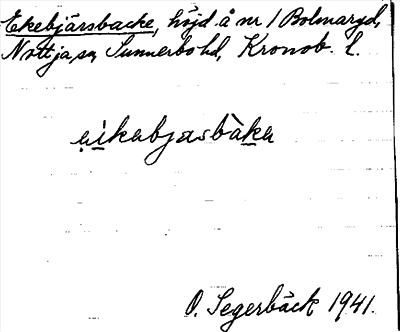 Ekebjärsbacke, höjd å nr 1 Bolmaryd,
Nöttja sn, Sunnerbo hd, Kronob. l.
ạikabjasbàka
O. Segerbäck 1941.